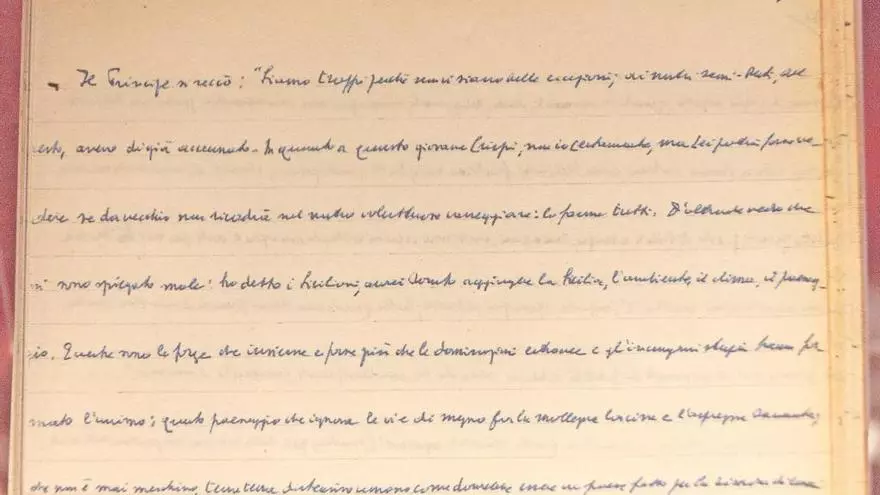 Il Principe si seccò: "Siamo troppi perché non ci siano delle eccezioni; ai nostri semi-desti, del
resto, avevo di già accennato. In quanto a questo giovane Crispi, non io certamente, ma Lei potrà forse ve-
dere se da vecchio non ricadrà nel nostro voluttuoso vaneggiare: lo fanno tutti. D'altronde vedo che
mi sono spiegato male: ho detto i Siciliani, avrei dovuto aggiungere la Sicilia, l'ambiente, il clima, il paesag-
gio. Queste sono le forze che insieme e forse più che le dominazioni estranee e gl'incongrui stupri hanno for
mato l'animo: questo paesaggio che ignora le vie di mezzo fra la mollezza lasciva e l'asprezza dannata;
che non è mai meschino, terra terra, distensivo umano come dovrebbe essere un paese fatto per la dimora di